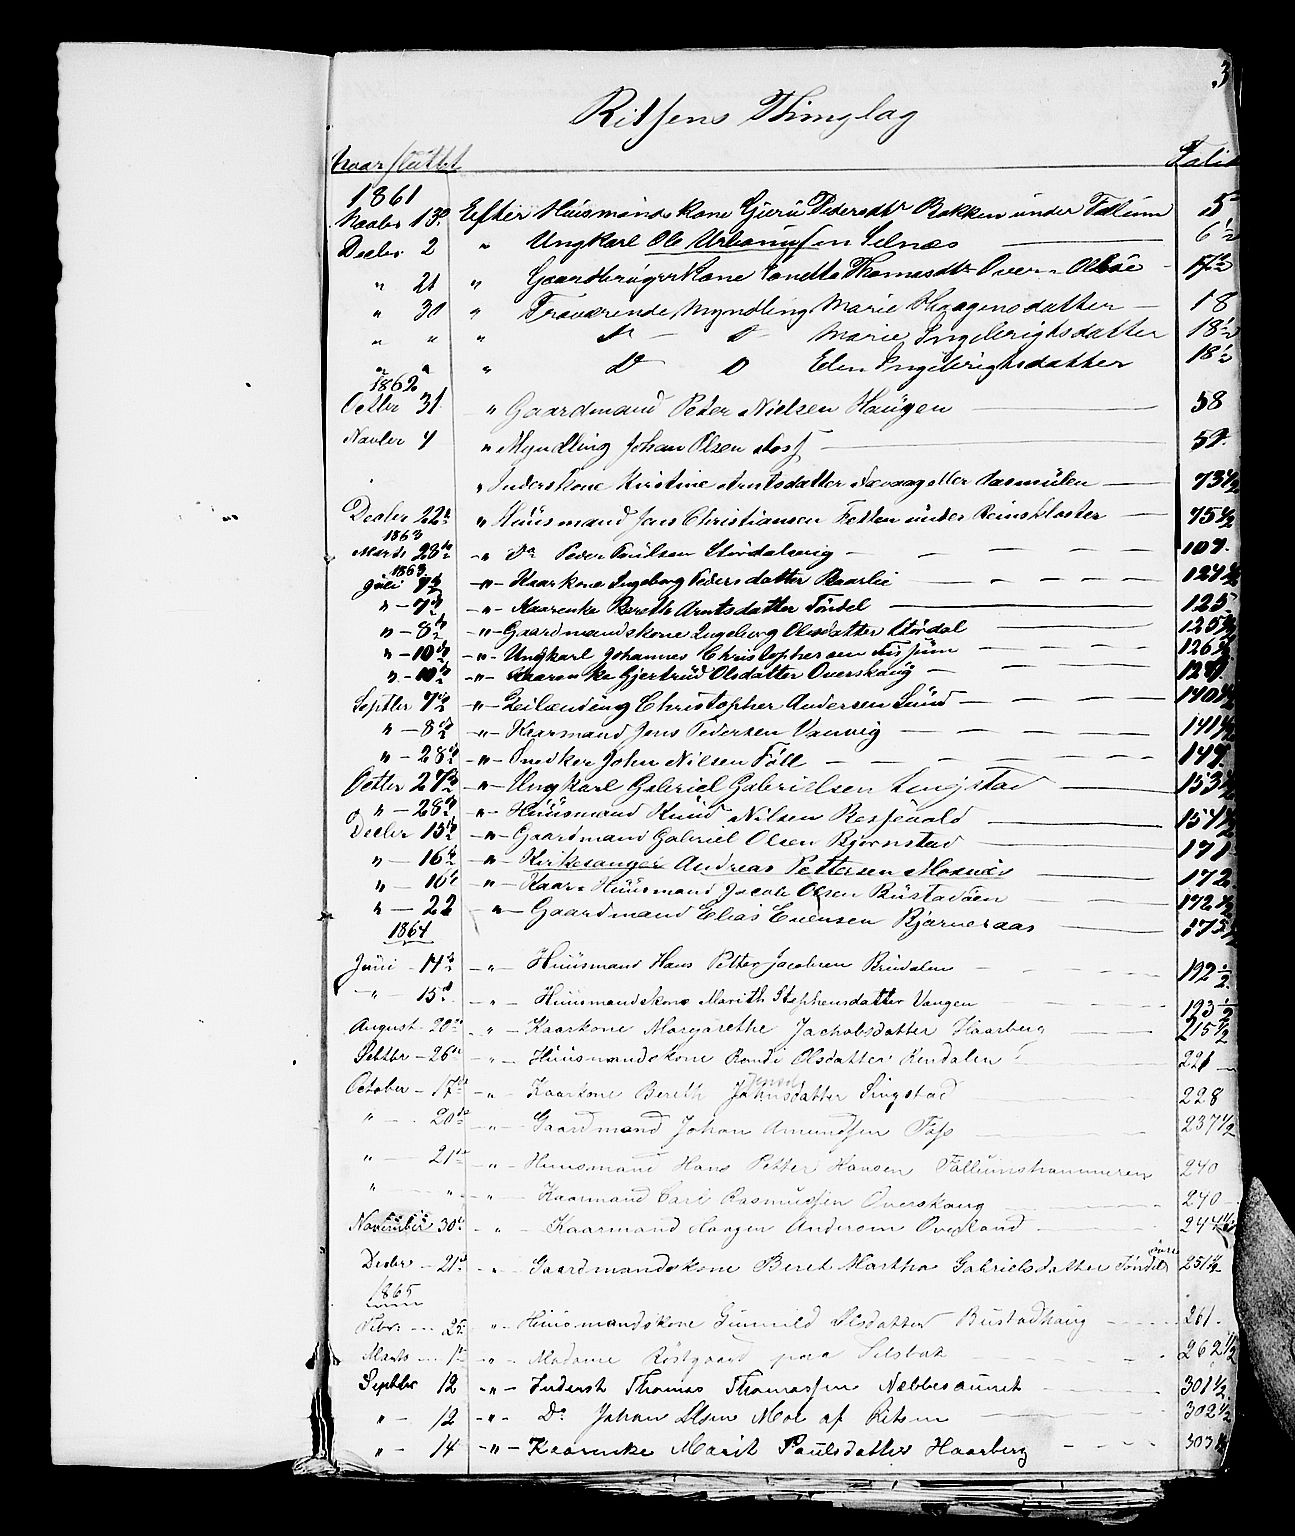 3
Ritsens Thinglag
Hvaar sluttet Folio
1861
Novbr 13. Efter Huusmands kone Guru Pedersdtr Bakken under Fallum 5
Decbr 2 " Ungkarl Ole Urbanussen Selnæs 6 1/2
" 21 " Gaardbrugerkone Thomasdtr Over 17 1/2
" 30 " Fraværende Myndling Marie Haagensdatter 18
" " " D - o - Marie Ingebrigtsdatter 18 1/2
" " " D o Elen Ingebrigtsdatter 18 1/2
1862
Octbr 31 " Gaardmand Peder Nielsen Haugen 58
Novbr 4 " Myndling Johan Olsen 59.
" Inderstkone Kirstine Arntsdatter eller Rasmulen 73 1/2
Decbr 22 " Huusmand Jens Christiansen Fetten under Reinskloster 75 1/2
1863
Marts 28 " Do Peder Poulsen Stordalsvig 107.
1863
Juli 7 - " - Kaarkone Ingeborg Pedersdatter Raarlie 124 1/2
" - 7 - " - Kaarenke Bereth Arntsdatter Tøndel 125
" - 8 - " - Gaardmandskone Ingeborg Olesdatter Stordal 125 1/2
" - 10 - " - Ungkarl Johannes Christophersen 126 1/2
" - 10 - " - Kaarenke Gjertrud Olsdatter Overskaug 127.
Septbr 7 - " - Zeilænding Christopher Andersen Sund 140 1/2
" - 8 - " - Kaarmand Jens Pedersen Vanvig 141 1/2
" - 28 - " - Snedker John Nilsen Föll 147.
Octbr 27 - " - Ungkarl Gabriel Gabrielsen Singstad 153 1/2
" - 28 - " - Huusmand Knud Nilsen 154 1/2
Decbr 15 - " - Gaardmand Gabriel Olsen Bjørnstad 171
" - 16 - " - Kirkesanger Andreas Pettersen 172.
" - 16 - " - Kaar- Huusmand Jacob Olsen Bustadöen 172 1/2
" - 22 " - Gaardmand Elias Evensen Bjørneraas 173 1/2
1864
Juni - 14 - " - Huusmand Hans Petter Jacobsen Brudalen 192 1/2
" - 15 - " - Huusmandskone Marith Stephensdatter Vangen 193 1/2
August - 20 - " - Kaarkone Margarethe Jachobsdatter Haarberg 215 1/2
Septbr - 26 - " - Huusmandskone Randi Olsdatter Rendalen 221
October - 17 - " - Kaarkone Bereth Johnsdatter Singstad 228
" - 20 - " - Gaardmand Johan Amundsen 237 1/2
" - 21 - " - Huusmand Hans Petter Hansen Fallumshammeren 240
" - " - " - Kaarmand Carl Rasmussen Overskaug 240
November 30 " - Kaarmand Haagen Andersen Overland 244 1/2
Decbr - 21 " - Gaardmandskone Beret Martha Gabrielsdatter Tøndel 251 1/2
1865
Febr. - 25 " - Huusmandskone Gunnild Olsdatter Bustadhaug 261.
Marts - 1 - " - Madame Röstgaard paa Selsbak 262 1/2
Septbr 12 - " - Inderst Thomas Thomassen Nebbesaunet 301 1/2
" - 12 - " - Do Johan Olsen Moe af Ritsen 302 1/2
" - 14 - " - Kaarenke Marit Paulsdatter Haarberg 303 1/2